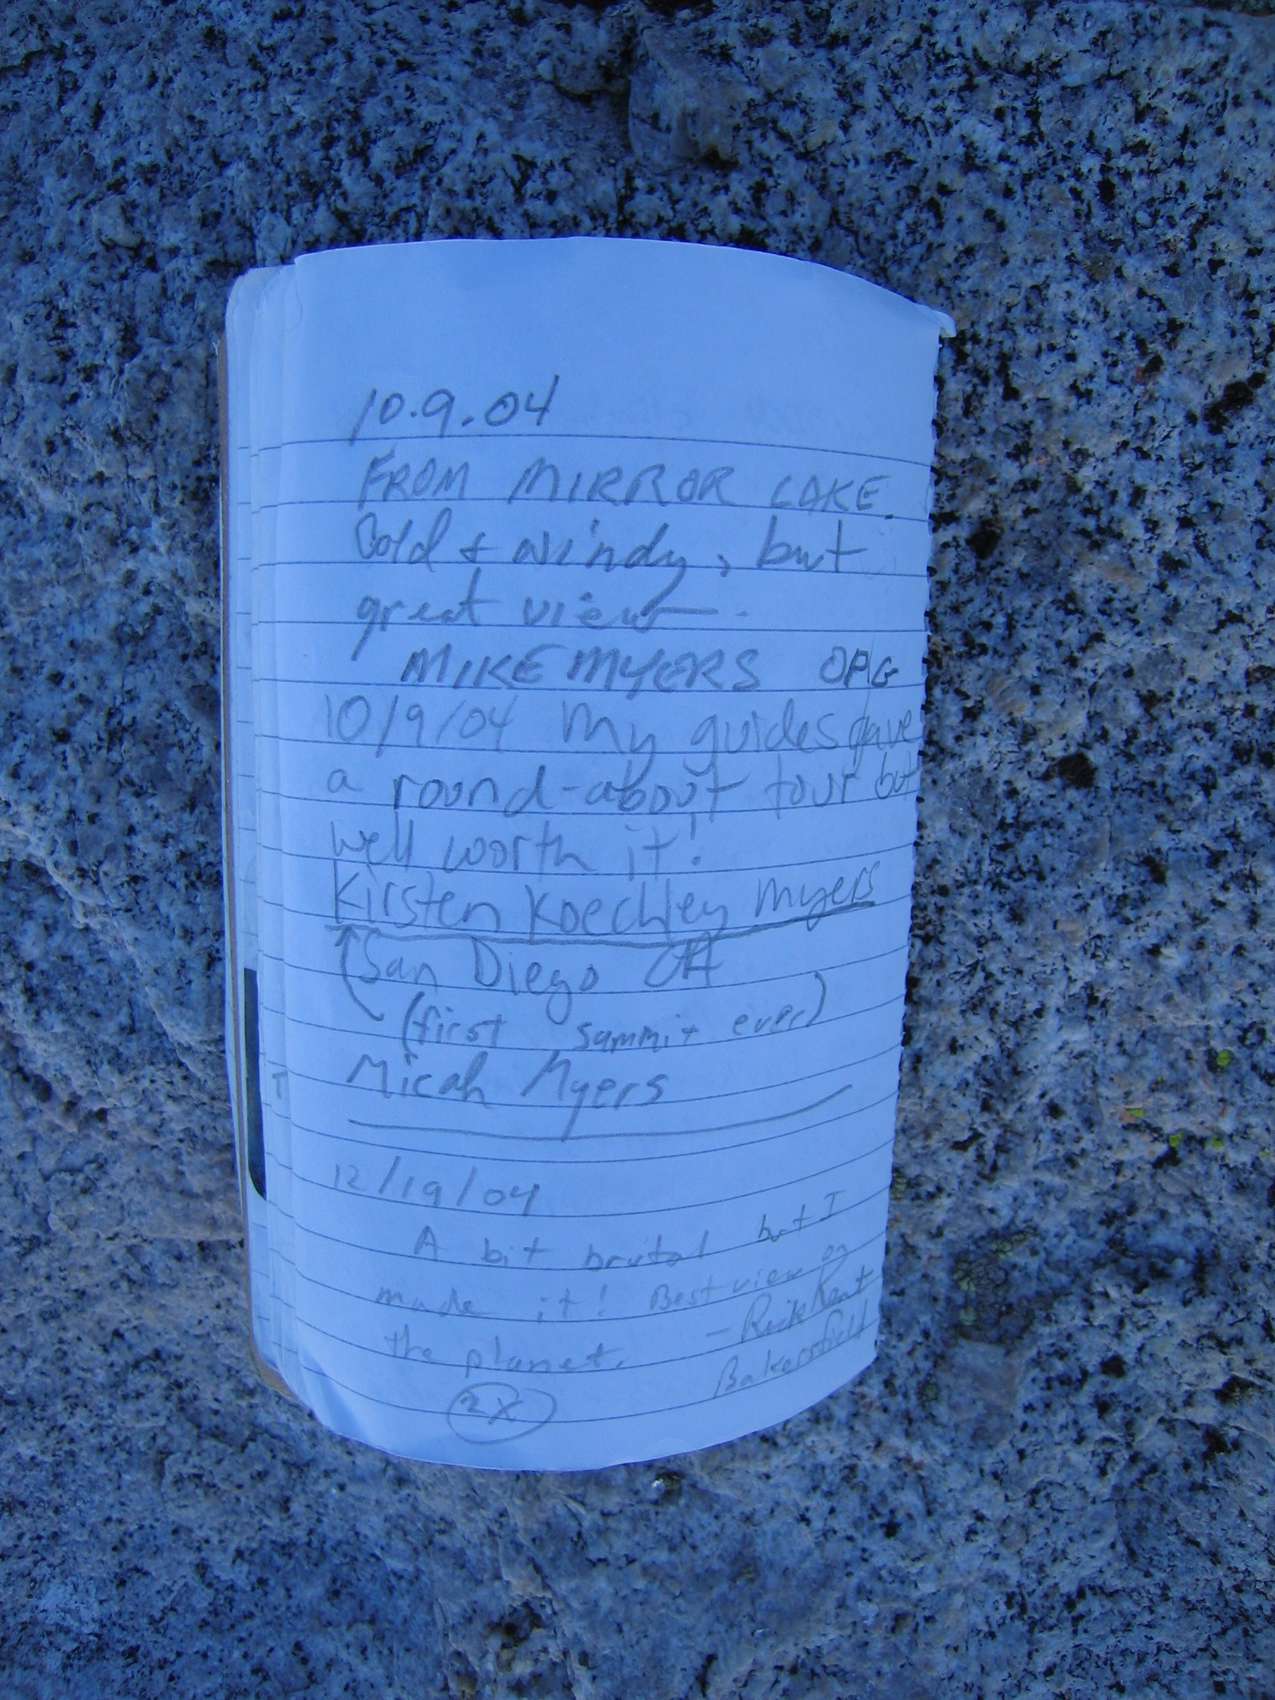 10.9.04
FROM MIRROR LAKE.
Cold & windy, but
great view.
MIKE MYERS OPG
10/9/04 My guides gave
a round-about tour but
well worth it!
Kirsten Koechley Myers
San Diego CA
(first summit ever)
Micah Myers
12/19/04
A bit brutal but I
made it! Best view on
the planet.
- Rick Kent
Bakersfield
2X